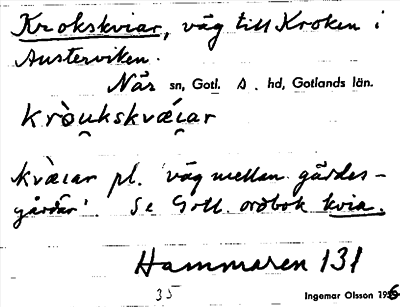 Krokskviar, väg till Kroken i
Austerviken.
När sn, Gotl. S. hd, Gotlands län.
kròu̯kskvǽıar
kvæ̀ıar pl. 'väg mellan gärdes-
gårdar'. Se Gotl. ordbok kvia.
Hammaren 131
35
Ingemar Olsson 1956